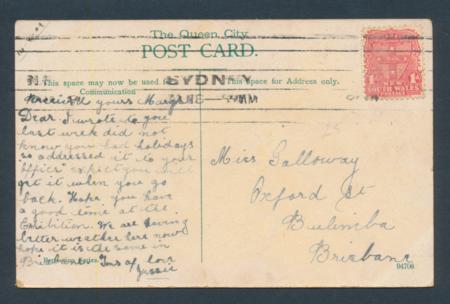 The Queen City
POST CARD.
This space may now be used for
Communication
This space for Address only.
SYDNEY
1d
SOUTH WALES
Received yours Marge
Dear I wrote to you
last week did not
know you had holidays
so addressed it to your
"office" expect you will
get it when you go
back. Hope you have
a good time at the
Exibition. We are having
better weather here now
hope it is the same in
Brisbane. Tons of love
Jessie
Miss Galloway
Oxford St
Bulimba
Brisbane
94706